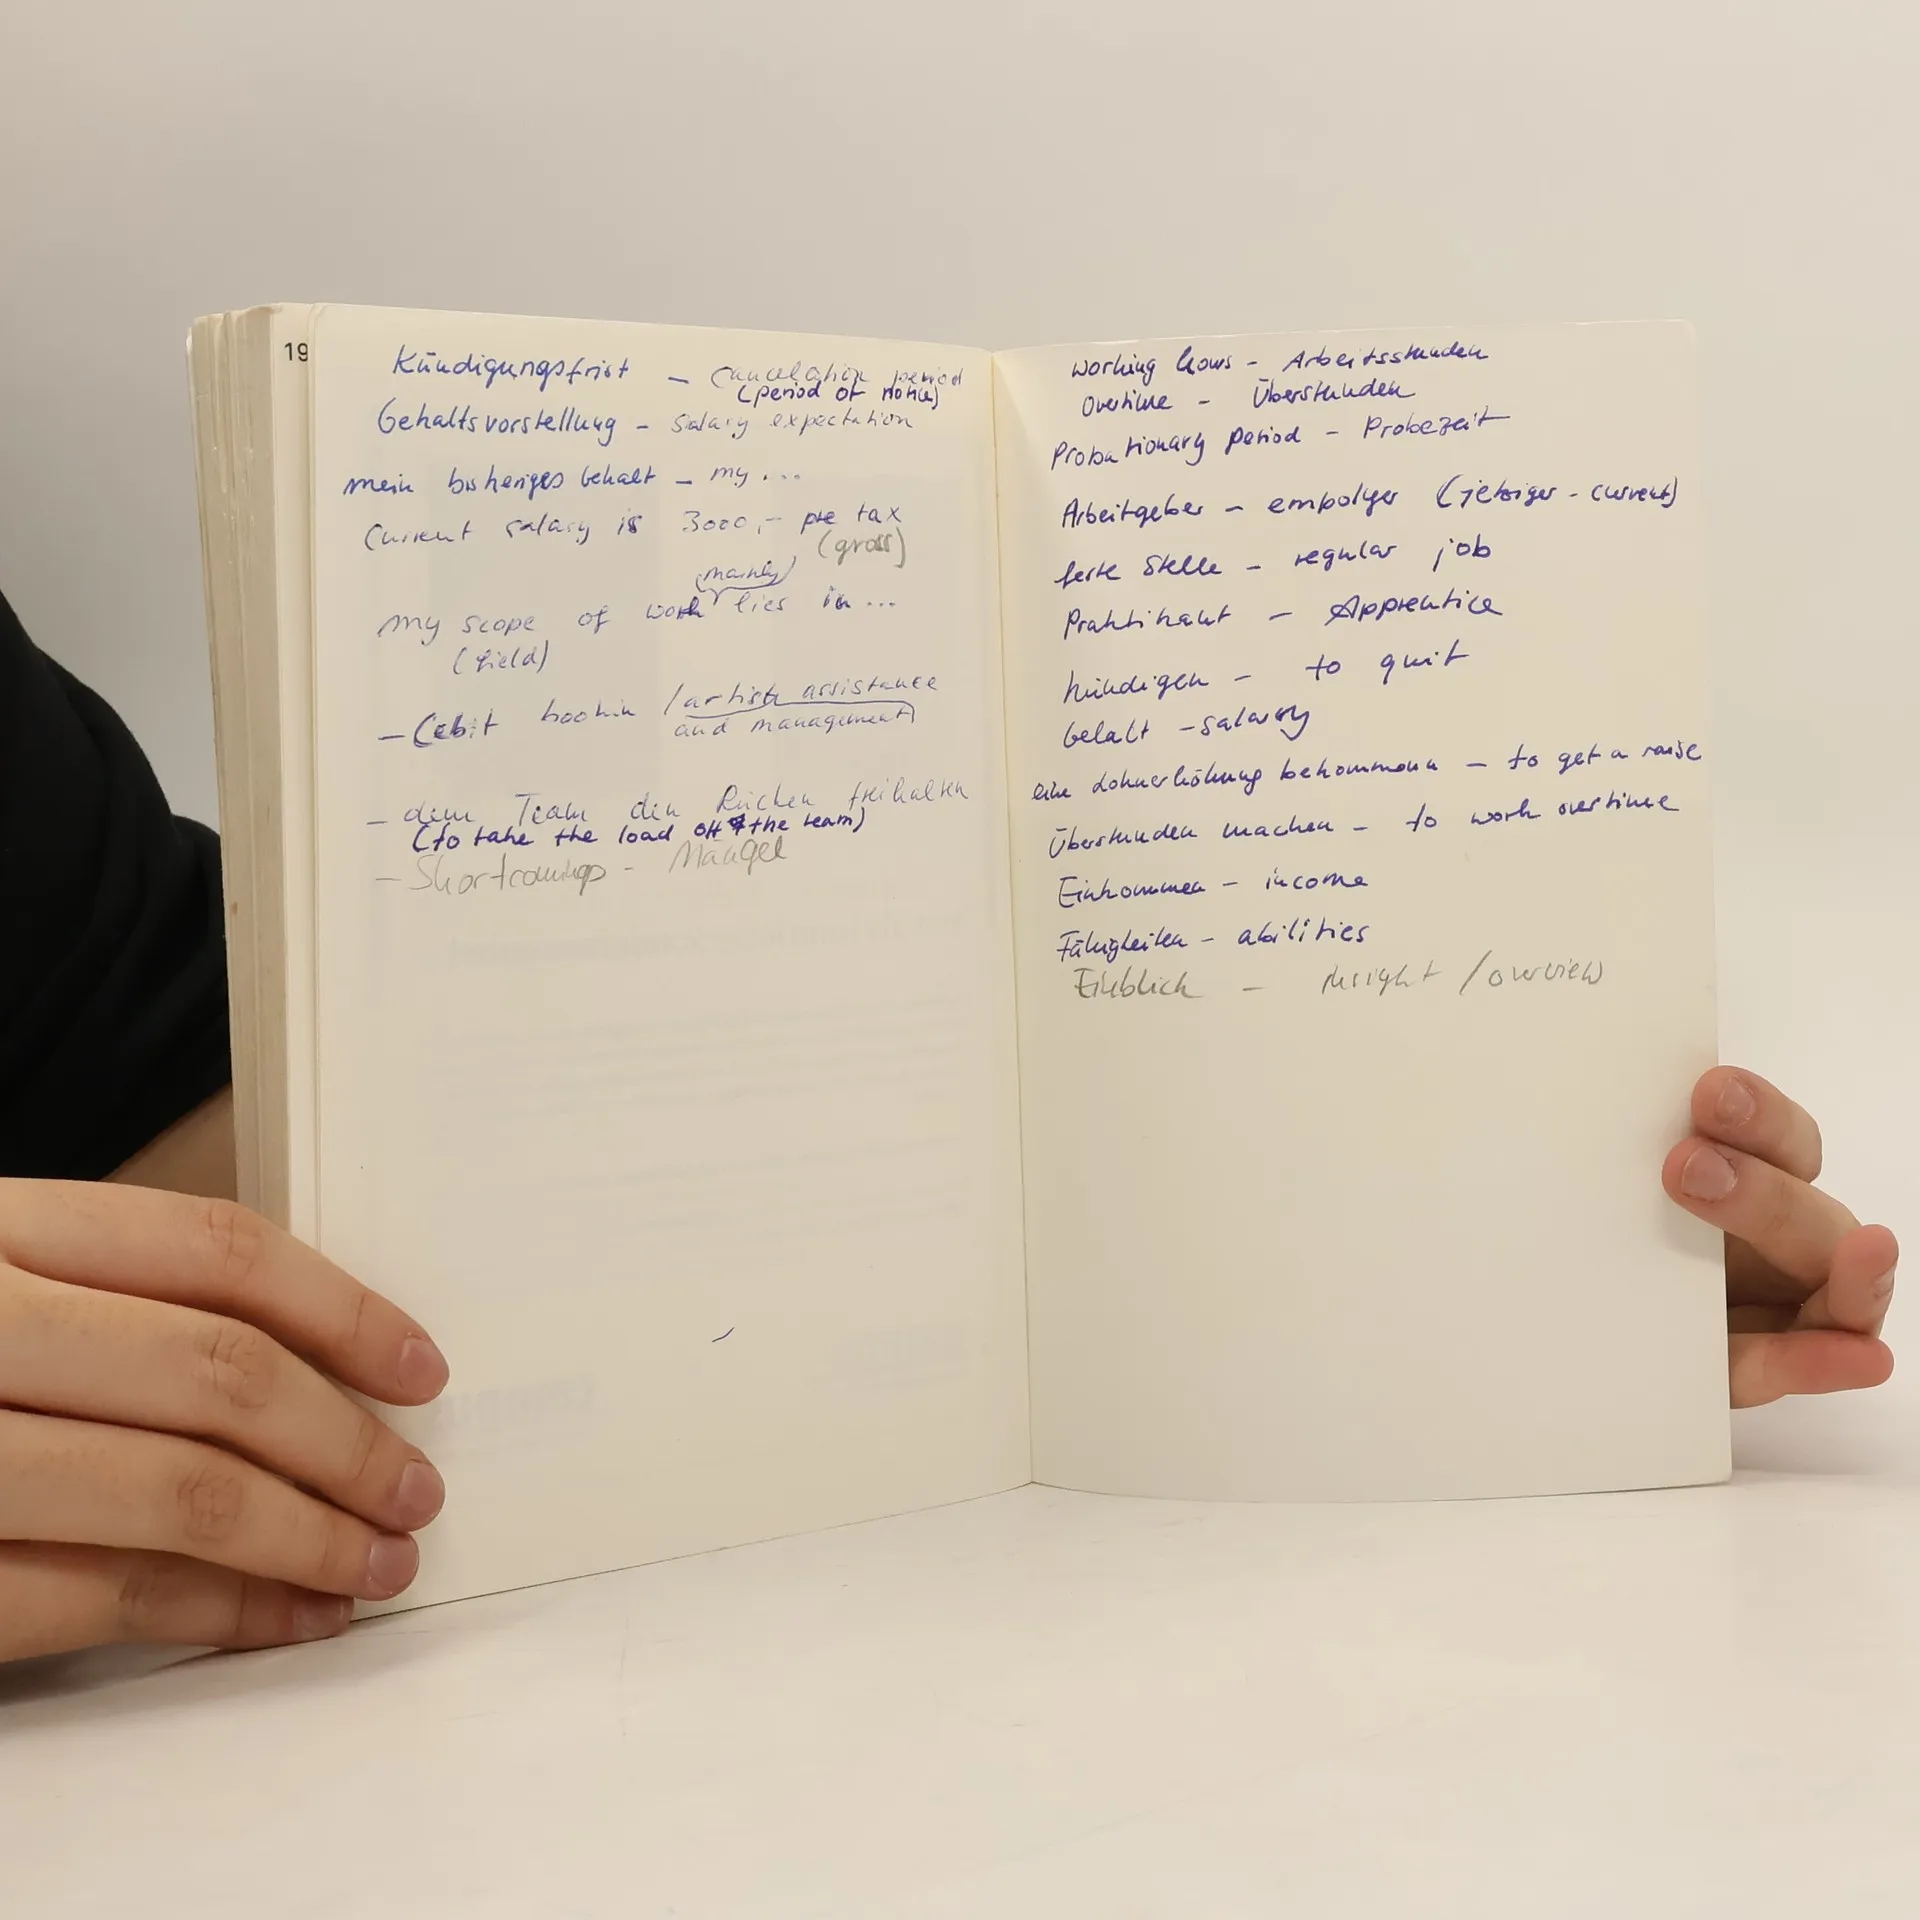 19
Kündigungsfrist - cancelation period
(period of notice)
Gehaltsvorstellung - salary expectation
mein bisheriges Gehalt - my ...
current salary is 3000,- pre tax
(gross)
(mainly)
my scope of work lies in ...
(field)
- Cebit bookin / artists assistance
and management
- dem Team den Rücken freihalten
(to take the load off the team)
- Shortcomings - Mängel
working hours - Arbeitsstunden
Overtime - Überstunden
Probationary period - Probezeit
Arbeitgeber - empolyer (jetziger - current)
feste Stelle - regular job
Praktikant - Apprentice
kündigen - to quit
Gehalt - salary
eine Lohnerhöhung bekommen - to get a raise
Überstunden machen - to work overtime
Einkommen - income
Fähigkeiten - abilities
Einblick - insight / overview